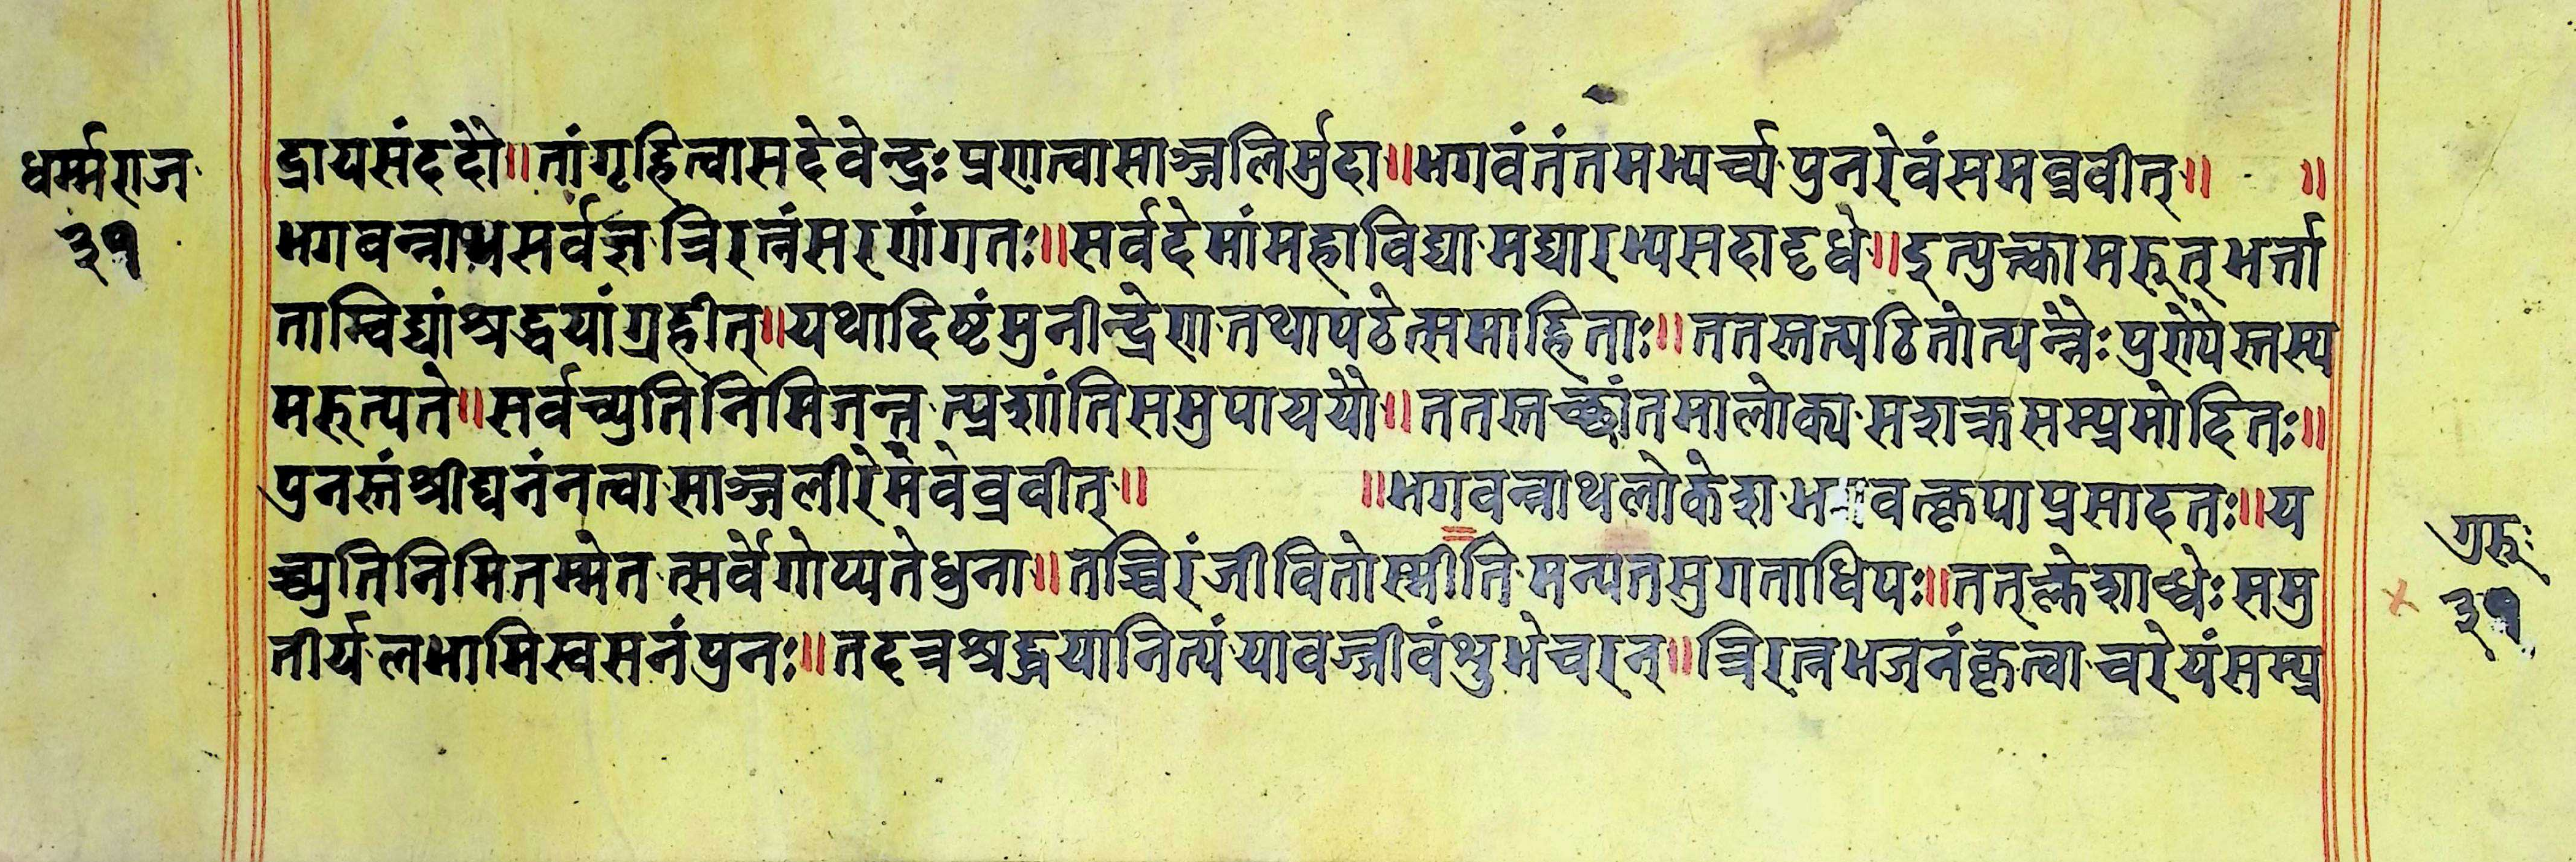 धर्म्मराज
३१
द्रायसंददौ॥तांगृह्नित्वासदेवेन्द्रः प्रणत्वासाञ्जलिर्मुदा॥भगवंतंतमभ्यर्च्य पुनरेवंसमब्रवीत्॥ ॥
भगवन्नाथसर्वज्ञ त्रिरत्नंसरणंगतः॥सर्वदेमांमहाविद्या मद्यारभ्यसदादृधे॥इत्युक्त्वामरुत्भर्त्ता
ताम्विद्यांश्रद्धयांग्रहीत्॥यथादिष्टंमुनीन्द्रेण तथापठेत्समाहिताः॥ततस्तत्पठितोत्पन्नैः पुण्यैस्तस्य
मरुत्पते॥सर्वच्युतिनिमितन्त त्प्रशांतिसमुपाययौ॥ततस्तच्छांतमालोक्य सशक्रसम्प्रमोदितः॥
पुनस्तंश्रीघनंनत्वा साञ्जलीरेमंवेब्रवीत्॥ ॥भगवन्नाथलोकेश वत्कृपाप्रसादतः॥य
च्च्युतिनिमितम्मेत त्सर्वेगोप्यतेधुना॥तच्चिरंजीवितोस्मीति मन्यतसुगताधिपः॥तत्क्लेशाब्धेः समु
तीर्य लभामिस्वसनंपुनः॥तदत्रश्रद्धयानित्यं यावज्जीवंशुभेचरन्॥त्रिरत्नभजनंकृत्वा चरेयंसम्प्र
गुरुः
३१